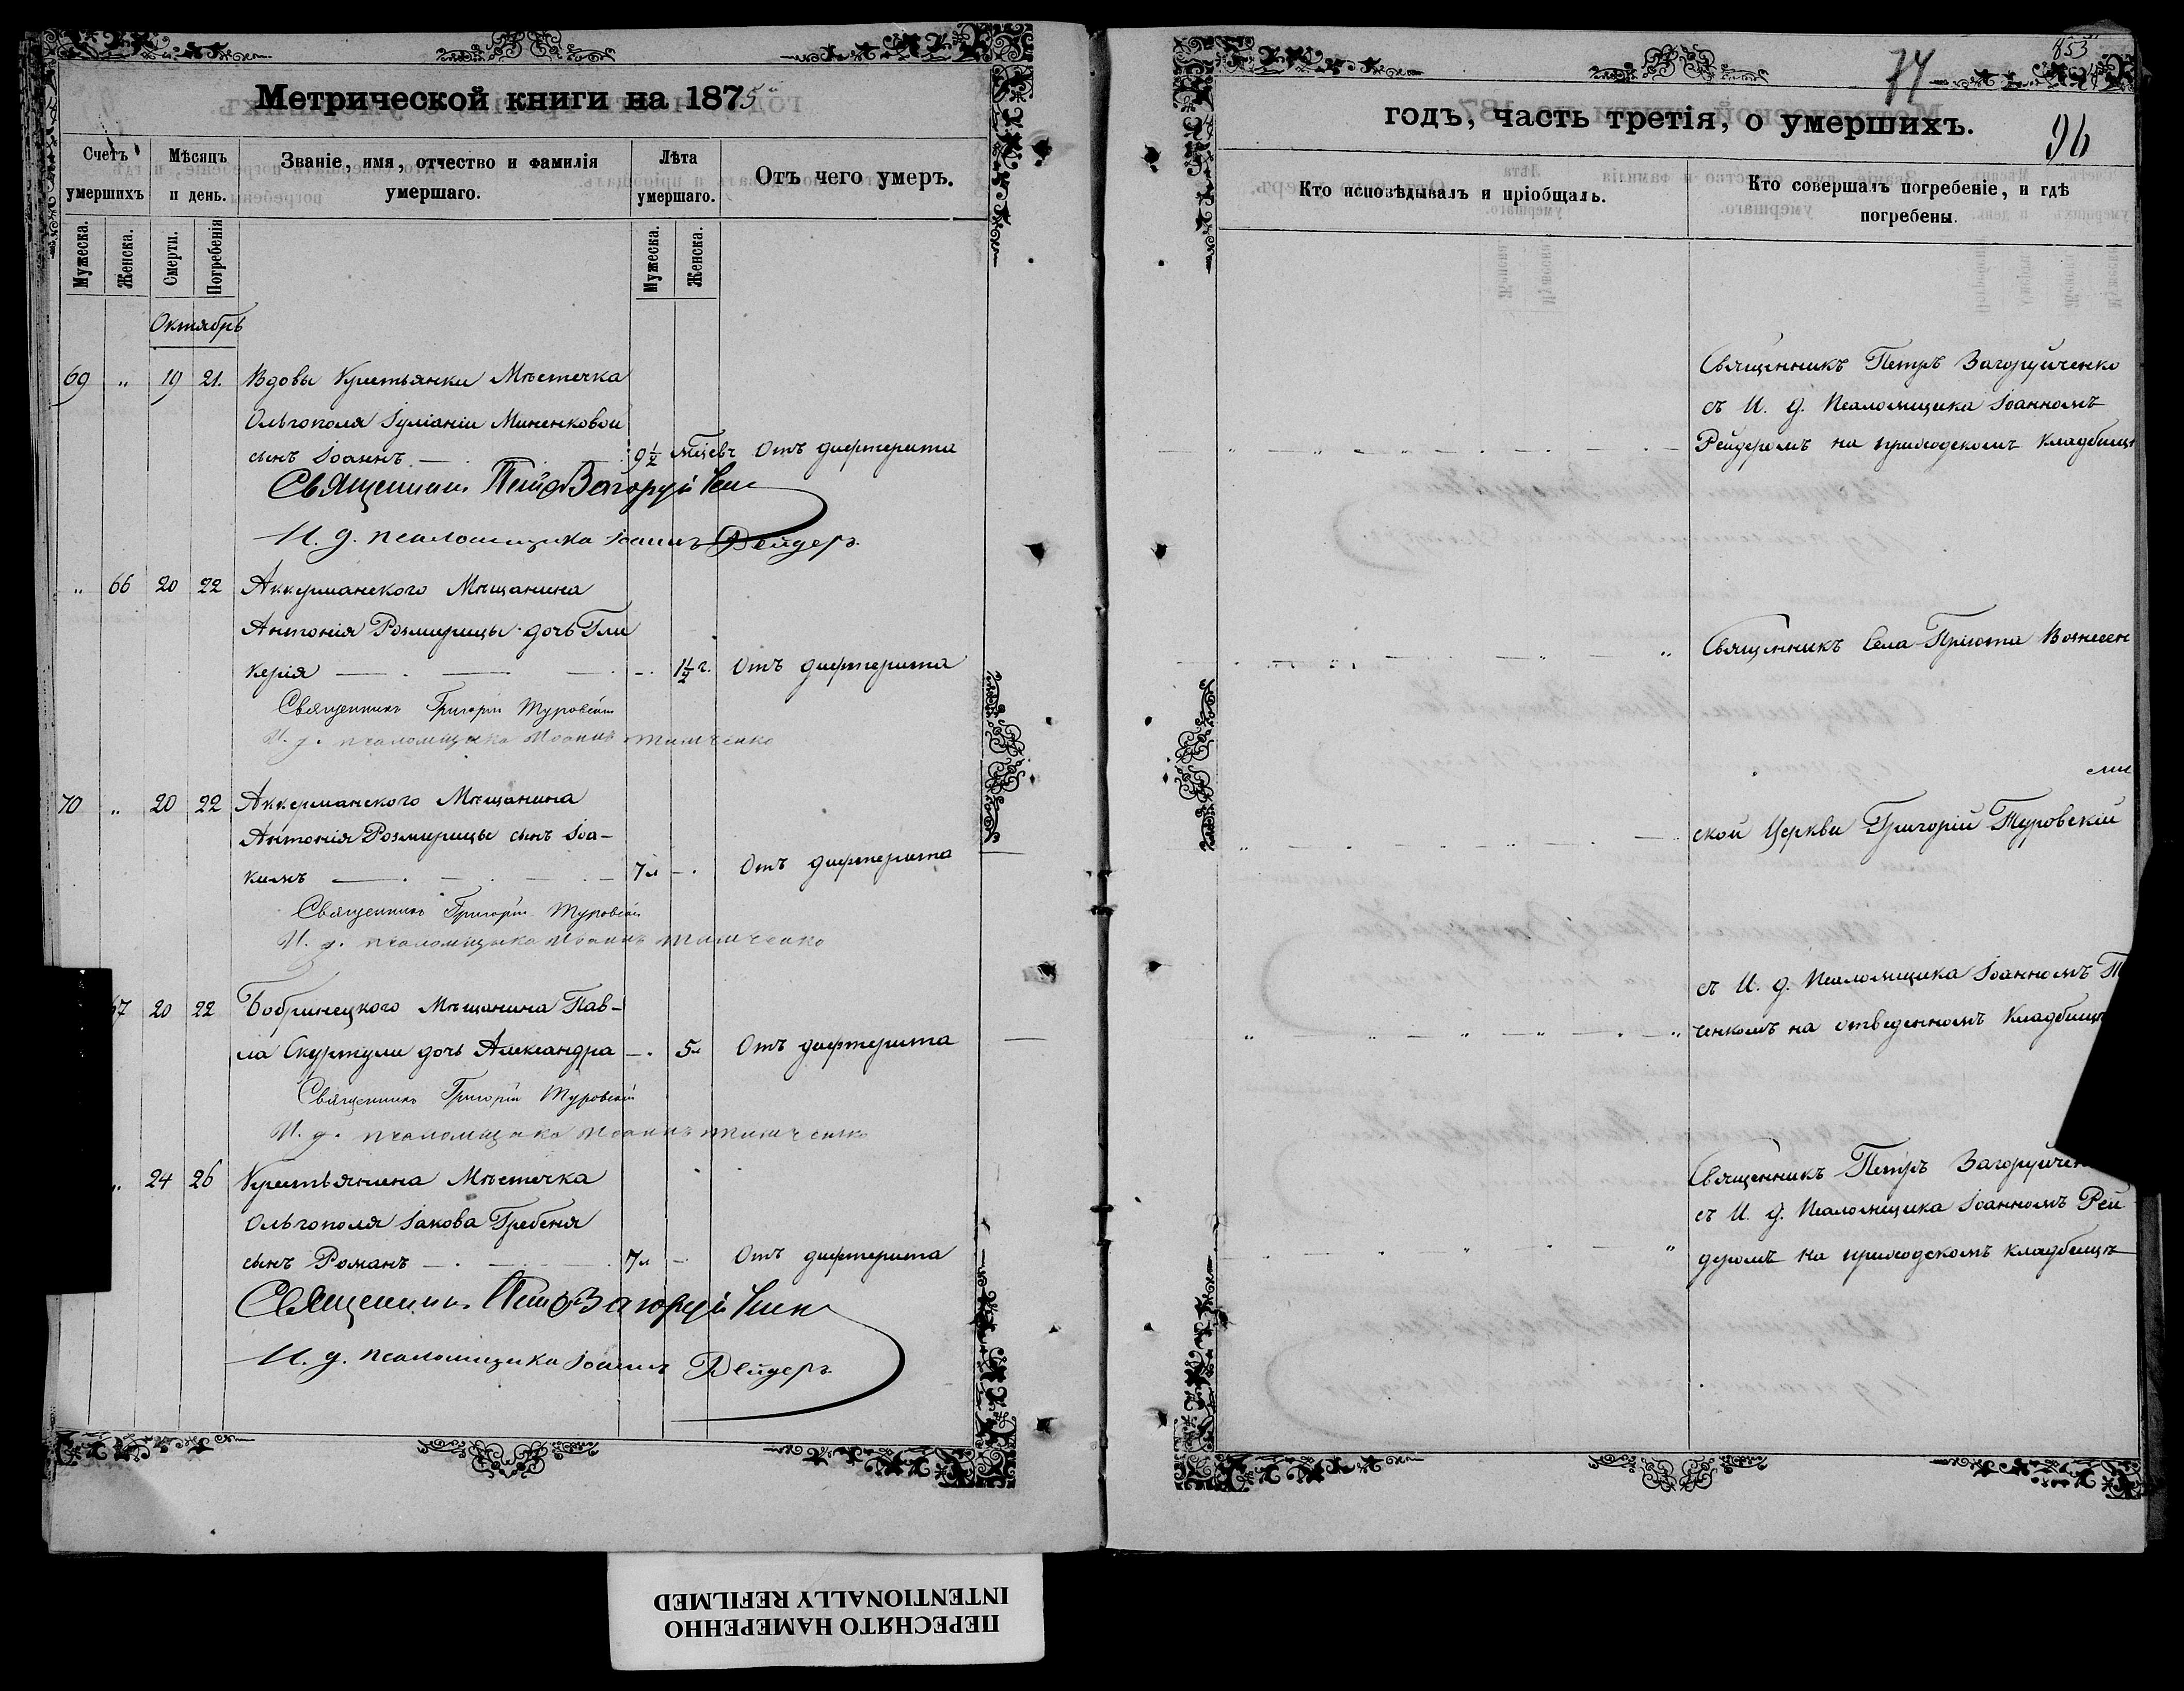 Метрической книги на 1875й
Счетъ умершихъ
Мѣсяцъ и день.
Званіе, имя, отчество и фамилія умершаго.
Лѣта умершаго.
Отъ чего умеръ.
Мужеска. Женска. Смерти. Погребенія Мужеска. Женска.
Октябрь
69 " 19 21. Вдовы Крестьянки Мѣстечка
Ольгополя Іуліаніи Миненковой
сынъ Іоаннъ 9 1/2 мѣсяч Отъ дифтерита
Священникъ Петръ Загоруйченко
И. д. псаломщика Іоаннъ Рейдеръ
" 66 20 22 Аккерманского Мѣщанина
Антонія Розмирицы дочь Гли
керія 1 1/2 г. Отъ дифтерита
Священникъ Григорій Туровскій
И. д. псаломщика Иоаннъ Тимченко
70 " 20 22 Аккерманского Мѣщанина
Антонія Розмирицы сынъ Іоа-
кимъ 7 л Отъ дифтерита
Священникъ Григорій Туровскій
И. д. псаломщика Иоаннъ Тимченко
67 20 22 Бобринецкого Мѣщанина Пав-
ла Скуртули дочь Александра 5 л Отъ дифтерита
Священникъ Григорій Туровскій
И. д. псаломщика Иоаннъ Тимченко
" 24 26 Крестьянина Мѣстечка
Ольгополя Іакова Гребеня
сынъ Романъ 7 л Отъ дифтерита
Священникъ Петръ Загоруйченко
И. д. псаломщика Іоаннъ Рейдеръ
853
74
годъ, часть третія, о умершихъ.
96
Кто исповѣдывалъ и пріобщалъ.
Кто совершалъ погребеніе, и гдѣ погребены.
Священникъ Петръ Загоруйченко
съ И. д. Псаломщика Іоанномъ
Рейдеромъ на приходскомъ кладбищѣ
Священникъ Села Пріюта Вознесен
ской Церкви Григорій Туровскій
съ И. д. Псаломщика Іоанномъ Т
ченкомъ на отведенномъ кладбищѣ
Священникъ Петръ Загоруйчен
съ И. д. Псаломщика Іоанномъ Рей
деромъ на приходскомъ кладбищѣ
ПЕРЕСНЯТО НАМЕРЕННО
INTENTIONALLY REFILMED